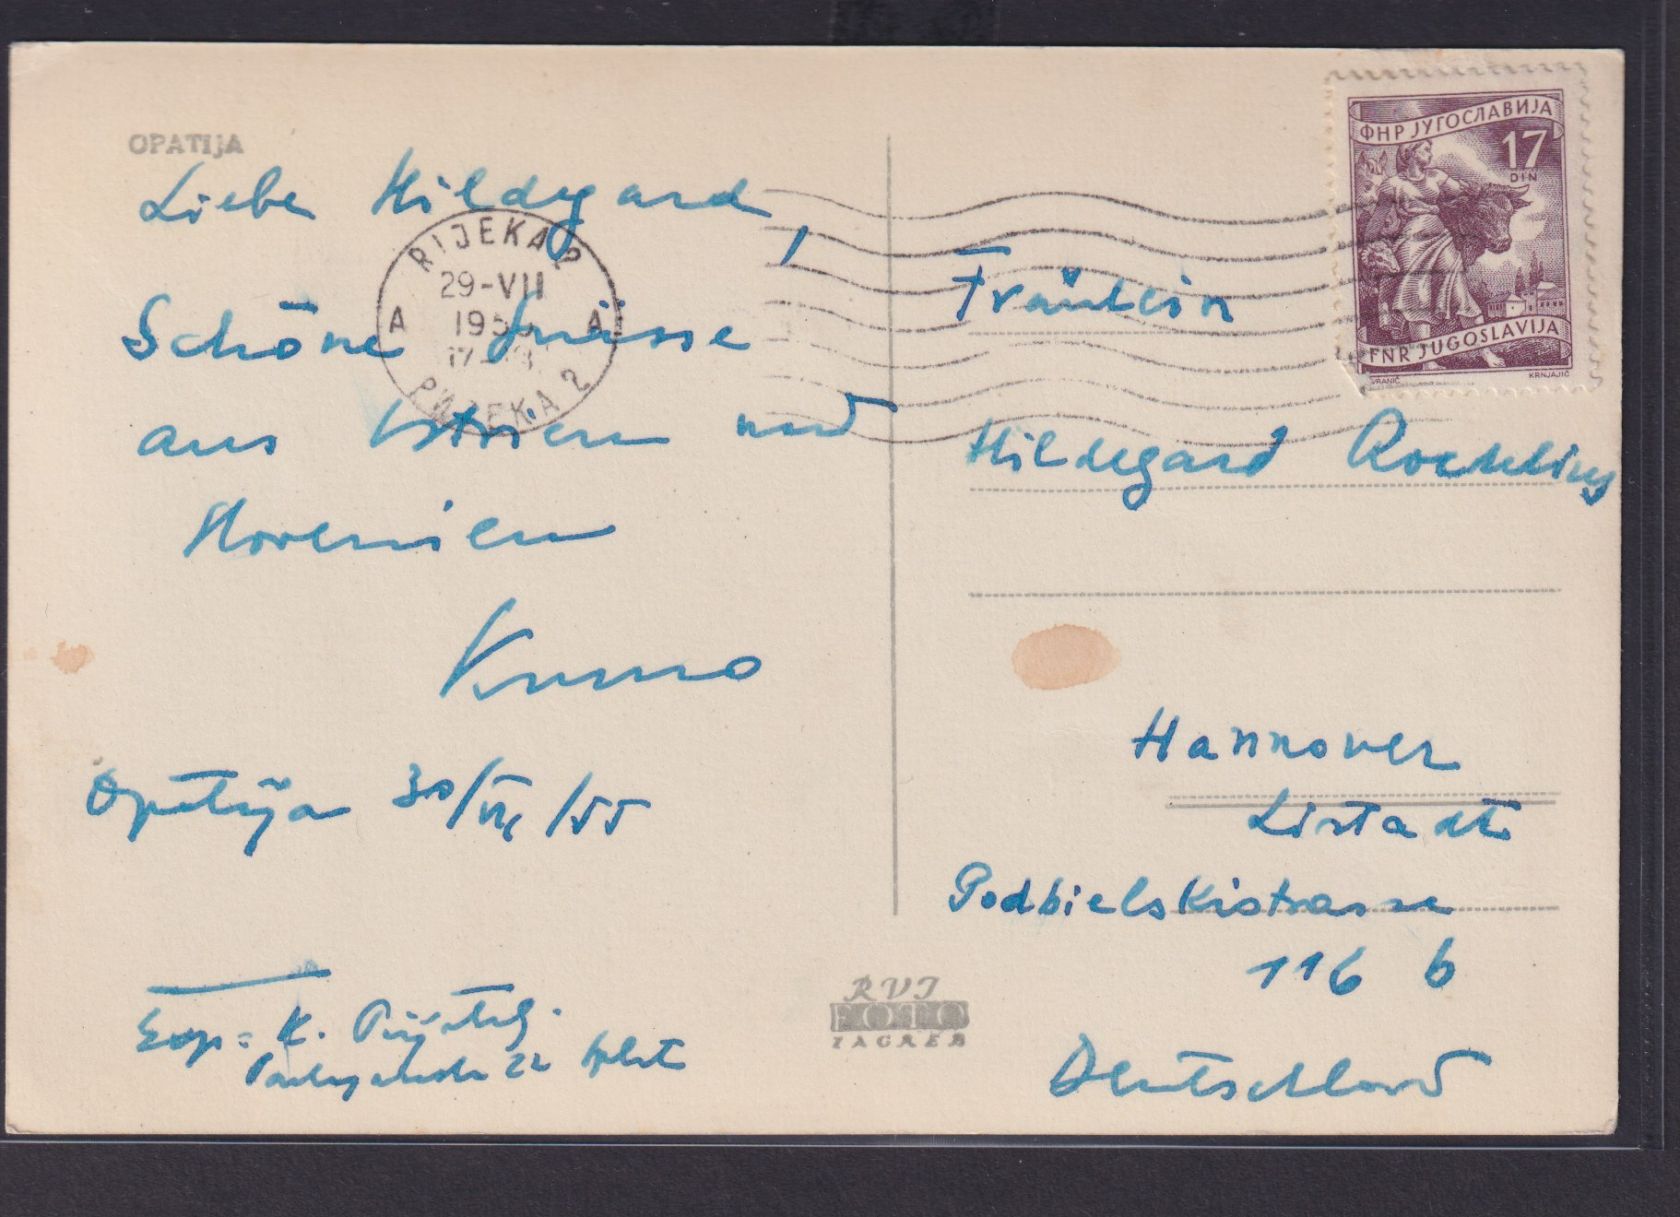 OPATIJA
Liebe Hildegard,
Schöne Grüsse
aus Istrien und
Slovenien
Kruno
Opatija 30/VII/55
Exp: K. Prijatelj
22 Split
RIJEKA 2
29-VII
A 195 A
17-18
РИЈЕКА 2
ФНР ЈУГОСЛАВИЈА
17
DIN
FNR JUGOSLAVIJA
VRANIĆ KRNJAJIĆ
Fräulein
Hildegard
Hannover
Listadt
Podbielskistrasse
116 b
Deutschland
RVI
FOTO
ZAGREB